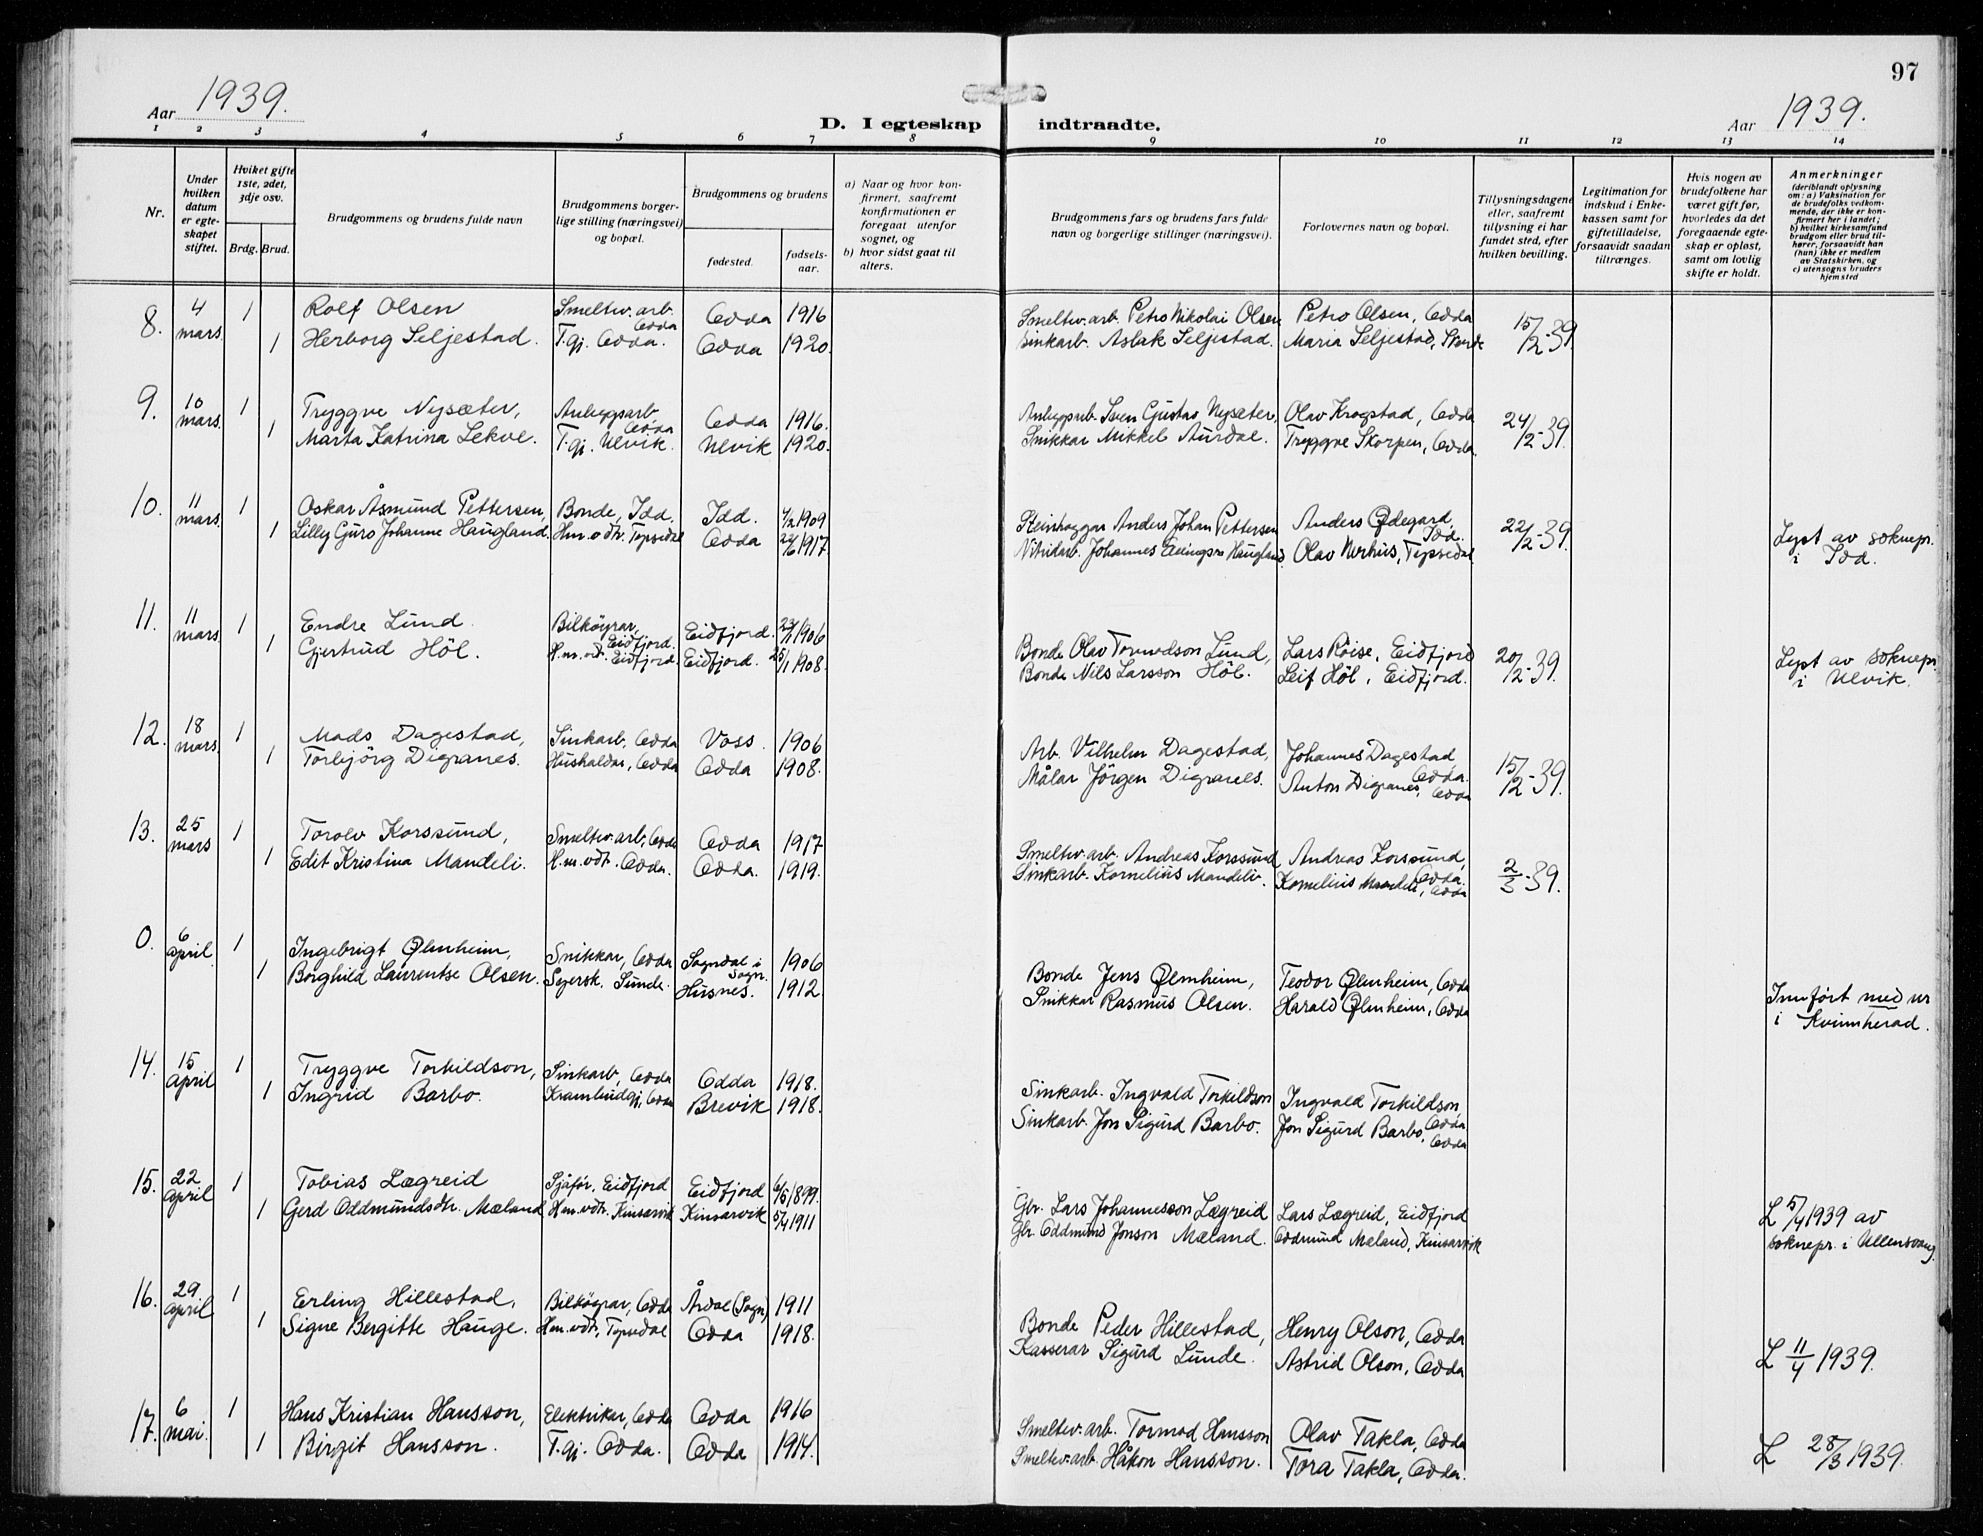 97
Aar 1939.
Aar 1939.
D. I egteskap indtraadte.
1 2 3 4 5 6 7 8 9 10 11 12 13 14
Nr.
Under hvilken datum er egteskapet stiftet.
Hviket gifte 1ste, 2det, 3dje osv.
Brdg. Brud.
Brudgommens og brudens fulde navn
Brudgommens borgerlige stilling (næringsvei) og bopæl.
Brudgommens og brudens
fødested.
fødselsaar.
a) Naar og hvor konfirmert, saafremt konfirmationen er foregaat utenfor sognet, og
b) hvor sidst gaat til alters.
Brudgommens fars og brudens fars fulde navn og borgerlige stillinger (næringsvei).
Forlovernes navn og bopæl.
Tillysningsdagene eller, saafremt tillysning ei har fundet sted, efter hvilken bevilling.
Legitimation for indskud i Enkekassen samt for giftetilladelse, forsaavidt saadan tiltrænges.
Hvis nogen av brudefolkene har været gift før, hvorledes da det foregaaende egteskap er opløst, samt om lovlig skifte er holdt.
Anmerkninger
(deriblandt oplysning om: a) Vaksination for de brudefolks vedkommende, der ikke er konfirmert her i landet; b) hvilket kirkesamfund brudgom eller brud tilhører, forsaavidt han (hun) ikke er medlem av Statskirken, og c) utensogns bruders hjemsted
8. 4 mars 1 Rolf Olsen Smeltev. arb. Odda Odda 1916 Smeltev. arb. Petro Nikolai Olsen Petro Olsen, Odda 15/2-39.
1 Herborg Seljestad. T.gj. Odda. Odda 1920. Sinkarb. Aslak Seljestad. Maria Seljestad, Skare
9. 10 mars. 1 Tryggve Nysæter, Anleggsarb Odda Odda 1916. Anleggsarb. Sven Gustav Nysæter, Olav Krogstad, Odda 24/2-39.
1 Marta Katrina Lekve. T.gj. Ulvik. Ulvik 1920. Snikkar Mikkel Aurdal. Tryggve Skorpen, Odda.
10. 11 mars. 1 Oskar Åsmund Pettersen, Bonde, Idd. Idd. 4/2 1909 Steinhoggar Anders Johan Pettersen Anders Ødegard, Idd. 22/2-39.
1 Lilly Guro Johanne Haugland. Hm.vdtr. Topsedal Odda 1917. Nitridarb. Johannes Haugland Olav Nerhus, Topsedal
Lyst av soknepr. i Idd.
11. 11 mars. 1 Endre Lund. Bilkøyrar, Eidfjord. Eidfjord. 1906 Bonde Olav Tormodson Lund, Lars Röise, Eidfjord 20/2-39.
1 Gjertrud Höl. H.m.vdt. Eidfjord. Eidfjord. 25/1 1908. Bonde Nils Larsson Höl. Leif Höl, Eidfjord.
Lyst av soknepr. i Ulvik.
12. 18 mars. 1 Mads Dagestad, Sinkarb, Odda Voss. 1906 Arb. Vilhelm Dagestad, Johannes Dagestad, Odda. 15/2-39.
1 Torbjörg Digranes. Hushaldar, Odda Odda 1908. Målar Jörgen Digranes. Anton Digranes, Odda
13. 25 mars 1 Torolv Korssund, Smeltev. arb, Odda Odda 1917 Smeltev. arb. Andreas Korssund Andreas Korssund, Odda. 2/3-39.
1 Edit Kristina Mandeli. H.m.vdt. Odda. Odda. 1919. Sinkarb. Kornelius Mandeli. Kornelius Mandeli, Odda
0. 6 april 1 Ingebrigt Ølmheim, Snikkar, Odda Sogndal i Sogn. 1906 Bonde Jens Ølmheim, Teodor Ølmheim, Odda
1 Borghild Laurentse Olsen. Syersk. Sunde. Husnes. 1912. Snikkar Rasmus Olsen. Harald Ølmheim, Odda
Innført med nr i Kvinnherad.
14. 15 april 1 Tryggve Torkildson, Sinkarb, Odda Odda 1918. Sinkarb. Ingvald Torkildson Ingvald Torkildson, Odda.
1 Ingrid Barbo. Krambudgj, Odda Brevik 1918. Sinkarb. Jon Sigurd Barbo. Jon Sigurd Barbo, Odda
15. 22 april 1 Tobias Lægreid Sjåfør, Eidfjord Eidfjord 6/5 1899. Gbr. Lars Johannesson Lægreid Lars Lægreid, Eidfjord
1 Gerd Oddmundsdtr. Mæland Hm.vdtr. Kinsarvik Kinsarvik 5/4 1911 Gbr. Oddmund Jonson Mæland. Oddmund Mæland, Kinsarvik
L 5/4 1939 av soknepr. i Ullensvang.
16. 29. april 1 Erling Hillestad, Bilkøyrar, Odda Årdal (Sogn) 1911 Bonde Peder Hillestad, Henry Olson, Odda
1 Signe Bergitte Hauge. Hm.vdt, Topsedal Odda 1918. Kasserar Sigurd Lunde. Astrid Olson, Odda
L 11/4 1939.
17. 6 mai. 1 Hans Kristian Hansson, Elektrikar, Odda Odda 1916 Smeltev. arb. Tormod Hansson Olav Takla, Odda
1 Birgit Hansson. T.gj. Odda. Odda 1914. Smeltev. arb. Håkon Hansson. Tora Takla, Odda.
L 28/3 1939.